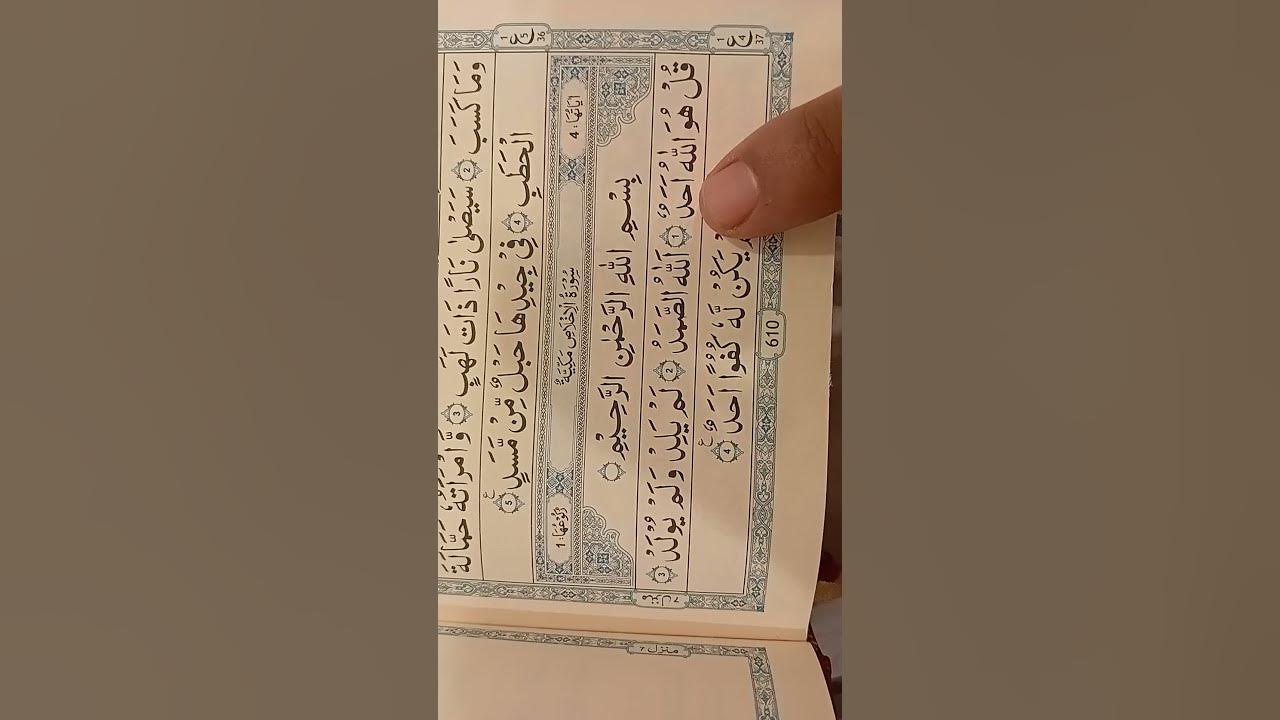 وَمَا كَسَبَ 2 سَيَصْلٰى نَارًا ذَاتَ لَهَبٍ 3 وَّامْرَاَتُهٗ حَمَّالَةَ
1 ع 5 36
الْحَطَبِ 4 فِيْ جِيْدِهَا حَبْلٌ مِّنْ مَّسَدٍ 5 ع
اٰيَاتُهَا : 4 سُوْرَةُ الْاِخْلَاصِ مَكِّيَّةٌ رُكُوْعُهَا : 1
بِسْمِ اللّٰهِ الرَّحْمٰنِ الرَّحِيْمِ
قُلْ هُوَ اللّٰهُ اَحَدٌ 1 اَللّٰهُ الصَّمَدُ 2 لَمْ يَلِدْ وَلَمْ يُوْلَدْ 3
1 ع 4 37
يَكُنْ لَّهٗ كُفُوًا اَحَدٌ 4 ع
610
منزل ٧